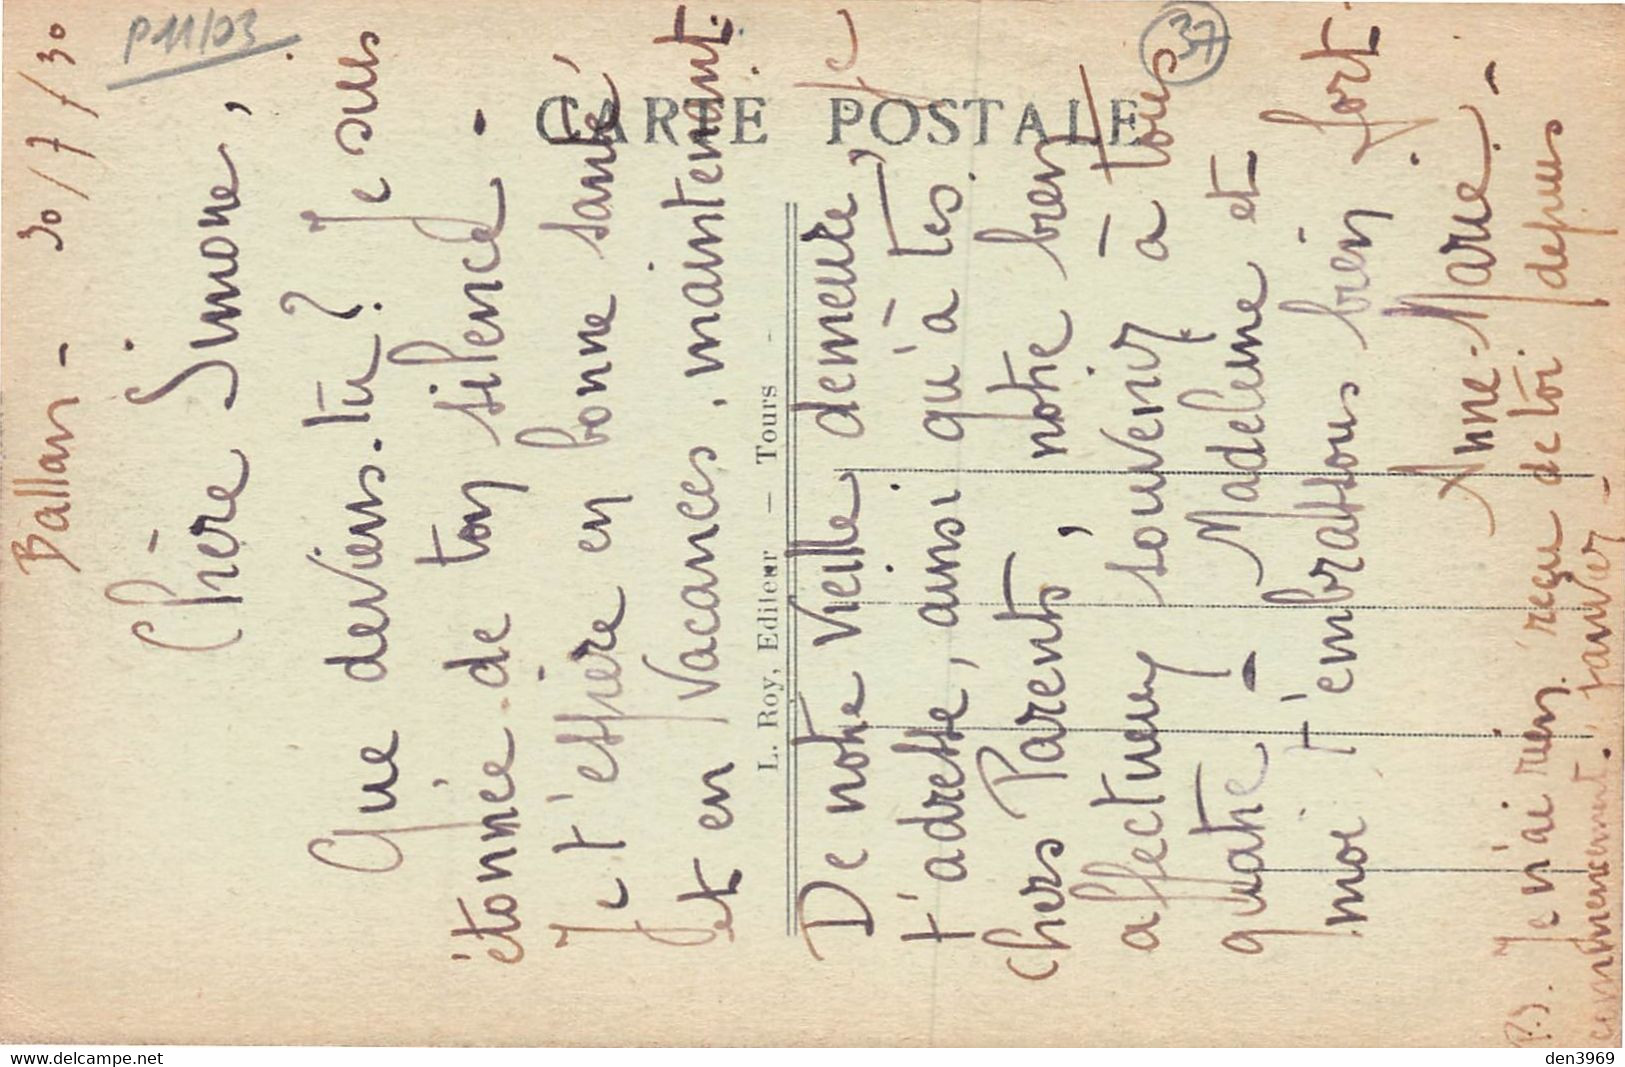 Ballan - 30/7/30
P11/03
37
Chère Simone,
Que deviens-tu? Je suis
étonnée de ton silence -
Je t'espère en bonne santé,
et en vacances, maintenant.
De notre vieille demeure, je
t'adresse, ainsi qu'à tes
chers Parents, notre bien
affectueux souvenir à tous
quatre - Madeleine et
moi t'embrassons bien fort.
Anne-Marie -
P.S. Je n'ai rien reçu de toi depuis
commencement janvier -
CARTE POSTALE
L. Roy, Editeur - Tours -
www.delcampe.net
den3969